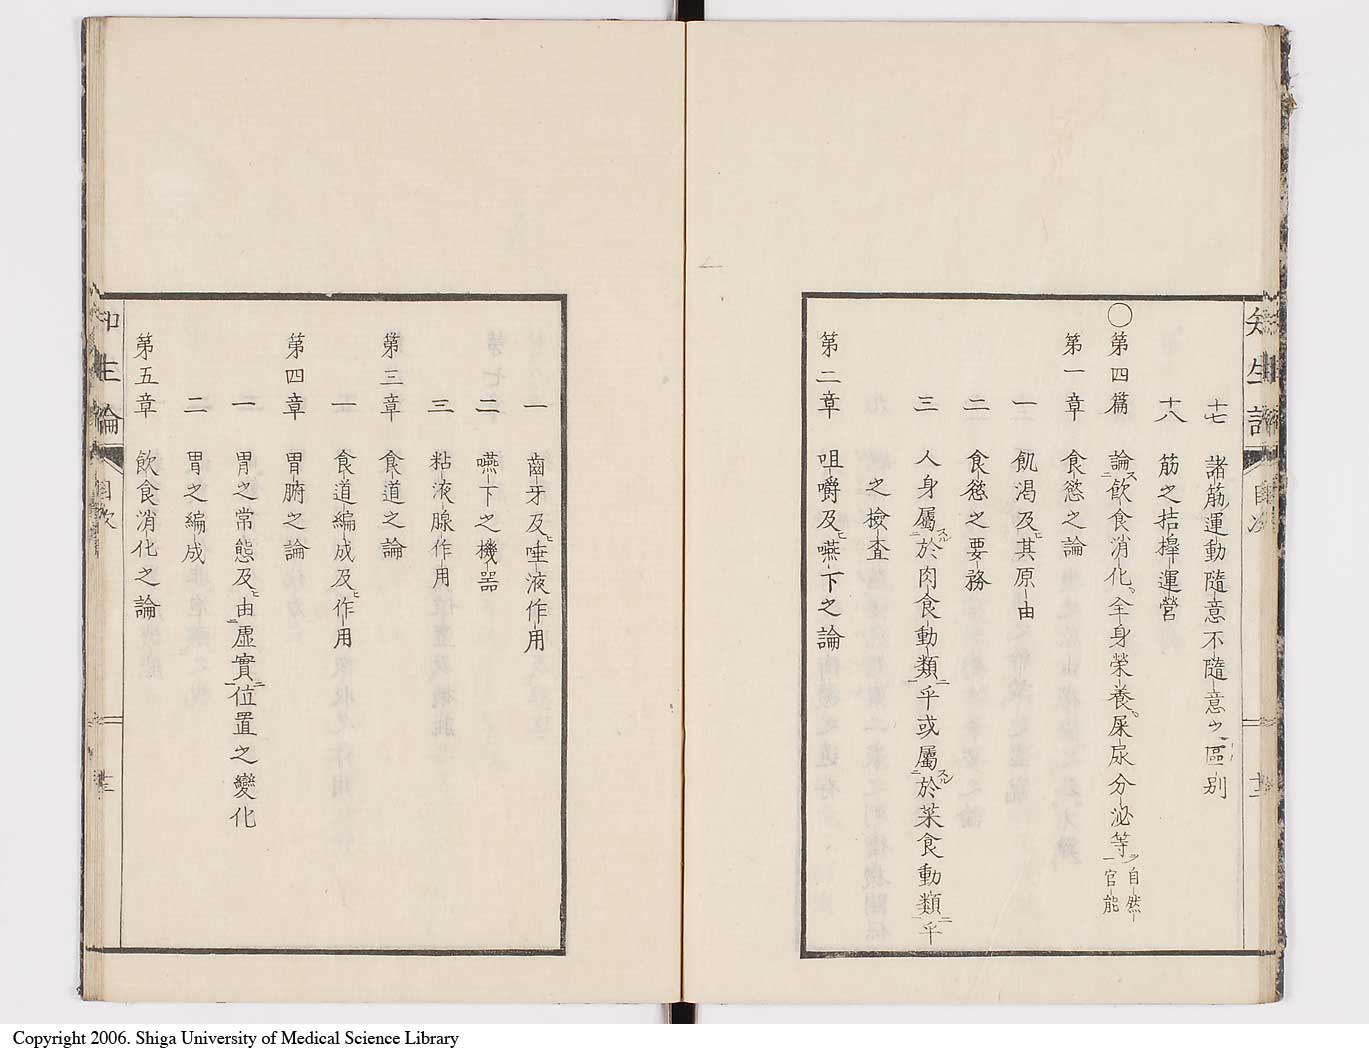 十七 諸筋運動隨意不隨意之區别
十八 筋之拮搙運營
〇第四篇 論飲食消化。全身榮養。屎尿分泌等自然官能
第一章 食慾之論
一 飢渇及其原由
二 食慾之要務
三 人身屬於肉食動類乎或屬於菜食動類乎
之撿査
第二章 咀嚼及嚥下之論
一 齒牙及唾液作用
二 嚥下之機器
三 粘液腺作用
第三章 食道之論
一 食道編成及作用
第四章 胃腑之論
一 胃之常態及由虚實位置之變化
二 胃之編成
第五章 飲食消化之論
知生論 目次
Copyright 2006. Shiga University of Medical Science Library